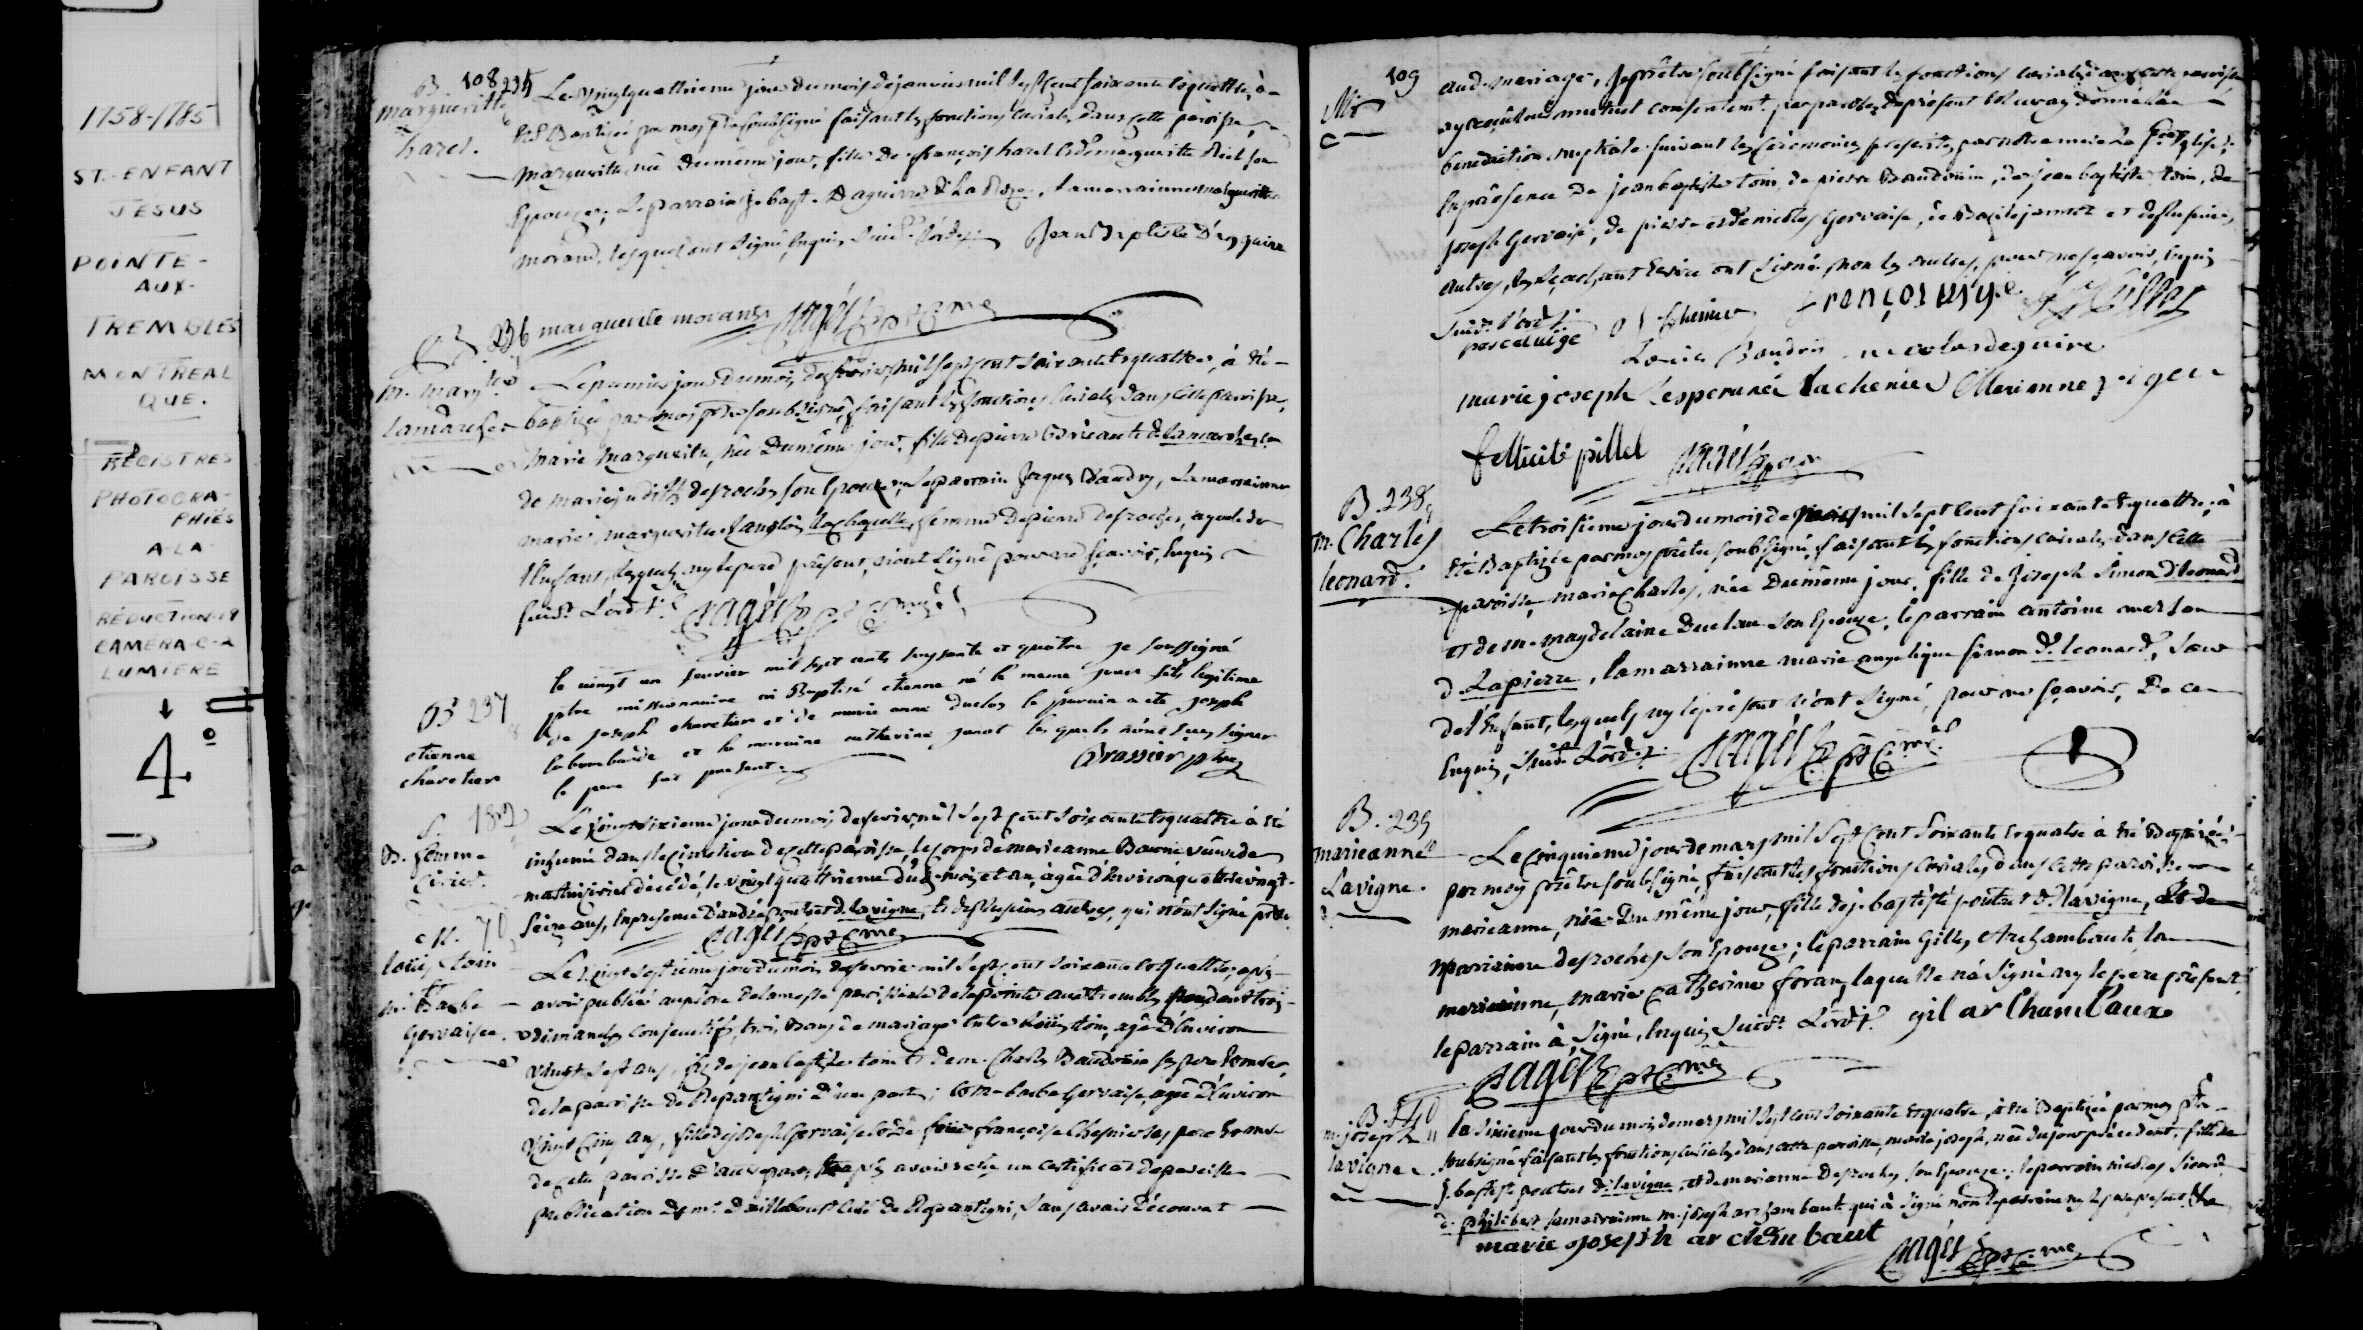 1758-1785
ST-ENFANT
JESUS
POINTE-
AUX-
TREMBLES
MONTREAL
QUE.
REGISTRES
PHOTOGRA-
PHIÉS
A-LA-
PAROISSE
REDUCTION-19
CAMERA-C-A
LUMIERE
4º
108
B. 235
margueritte
harel.
Le vingtquattrieme jour du mois de janvier mil sept cent soixante et quattre, à
Eté Baptizée par moy soubsigné faisant les fonctions curiales dans cette paroisse,
marguerite née du même jour, fille de françois harel et de marguerite
Epouze; Le parrain j. bapt. Daguire d. La Roze, La marrainne marguerite
morand, lesquels ont signé, Enquis Suivt. l'ord. Jean Baptiste Daguire
marguerite morand
B. 236
m. margte.
Lamarche
Le premier jour du mois de fevrier mil sept cent soixante et quattre, à été
baptizée par moy ptre. soubsigné faisant les fonctions curiales dans cette paroisse,
marie marguerite, née Du même jour, fille de pierre d. lamarche, et
de marie judith desroches son Epouze; Le parrain Jacques Baudry, La marrainne
marie marguerite Langlois, femme de pierre desroches, ayeule de
l'Enfant, lesquels ny le pere présent, n'ont signé pour ne sçavoir, Enquis
suivt. L'ord.
B 237
etienne
charetier
le vingt un fevrier mil sept cents soysante et quatre je soussigné
ptre missionnaire ai Baptisé etienne né le meme jour fils legitime
de joseph charetier et de marie anne duclos le parain a ete joseph
labombarde et la maraine catherine janot les quels n'ont sceu signer
le pere fut present. Brassier ptre
S. 182
Le vingtsixieme jour du mois de fevrier, mil sept cent soixante et quattre à été
inhumé dans le cimetiere de cette paroisse, le corps de marieanne veuve de
décédé, le vingt quattrieme du d. mois et an, agée d'Environ quattrevingt-
seize ans, En presence d'andré d. Lavigne, et de plusieurs autres, qui n'ont signé
M. 70
Loüis toin
m. Barbe
Gervaise.
Le vingt septieme jour du mois de fevrier mil sept cent soixante et quattre, après
avoir publié au prône de la messe paroissiale de la pointe aux trembles pendant trois
dimanches consecutifs, trois bans de mariage Entre Loüis toin, agé D'Environ
vingt sept ans, fils de jean baptiste toin et de m. Charles Baudoin ses pere et mere,
de la paroisse de Repantigni D'une part; et m. barbe Gervaise, agée D'Environ
vingt Cinq ans, fille de joseph Gervaise et de françoise ses pere et mere
de cette paroisse d'autre part, après avoir reçu un certificat de pareille
publication de mr. Curé de Repantigni, Sans avoir Découvert
109
aud. mariage, Je prêtre soubsigné faisant les fonctions curiales dans cette paroisse
ay reçu leur mutuel consentemt. par paroles de présent et leur ay donné la
benediction nuptiale suivant les cérémonies prescrites par notre mere la Ste. Eglise;
En présence de jean baptiste toin, de pierre Baudouin, de jean baptiste toin, de
joseph Gervaise, de pierre et de nicolas Gervaise, de Bazile et de plusieurs
autres, les sçachant Ecrire ont signé, non les autres, pour ne sçavoir, Enquis
suivt. l'ord. François
Louis Baudoin nicolas deguire
marie joseph Lesperance Marianne
fellicité pillet
B. 238
m. Charles
leonard.
Le troisieme jour du mois de mars mil sept cent soixante et quattre, à
Eté Baptizée par moy prêtre soubsigné, faisant les fonctions curiales dans cette
paroisse, marie Charles, née Du même jour, fille de Joseph Simon d. leonard
et de m. magdelaine Duclau son Epouze; le parrain antoine
d. Lapierre, la marrainne marie angelique simon d. leonard, sœur
de l'Enfant, lesquels ny le présent n'ont signé, pour ne sçavoir, De ce
Enquis, suivt. L'ord.
B. 239
marieanne
Lavigne.
Le Cinquieme jour de mars mil sept cent soixante et quatre à été Baptizée
par moy prêtre soubsigné, faisant les fonctions curiales dans cette paroisse
marieanne, née Du même jour, fille de j. baptiste d. lavigne, et de
marianne desroches son Epouze; le parrain Gilles Archambaut, la
marrainne, marie Catherine foran, laquelle n'a signé ny le pere présent
le parrain à signé, Enquis suivt. l'ord. gil ar Chambaux
B. 240
m. joseph
lavigne
Le sixieme jour du mois de mars mil sept cent soixante et quatre, à été Baptizée par moy
soubsigné faisant les fonctions curiales dans cette paroisse, marie joseph, née du jour précedent, fille de
j. baptiste d. lavigne, et de marianne Desroches son Epouze; le parrain nicolas
d. la marrainne m. joseph archambaut qui à signé non le parrain ny le pere present
marie joseph ar chembaut